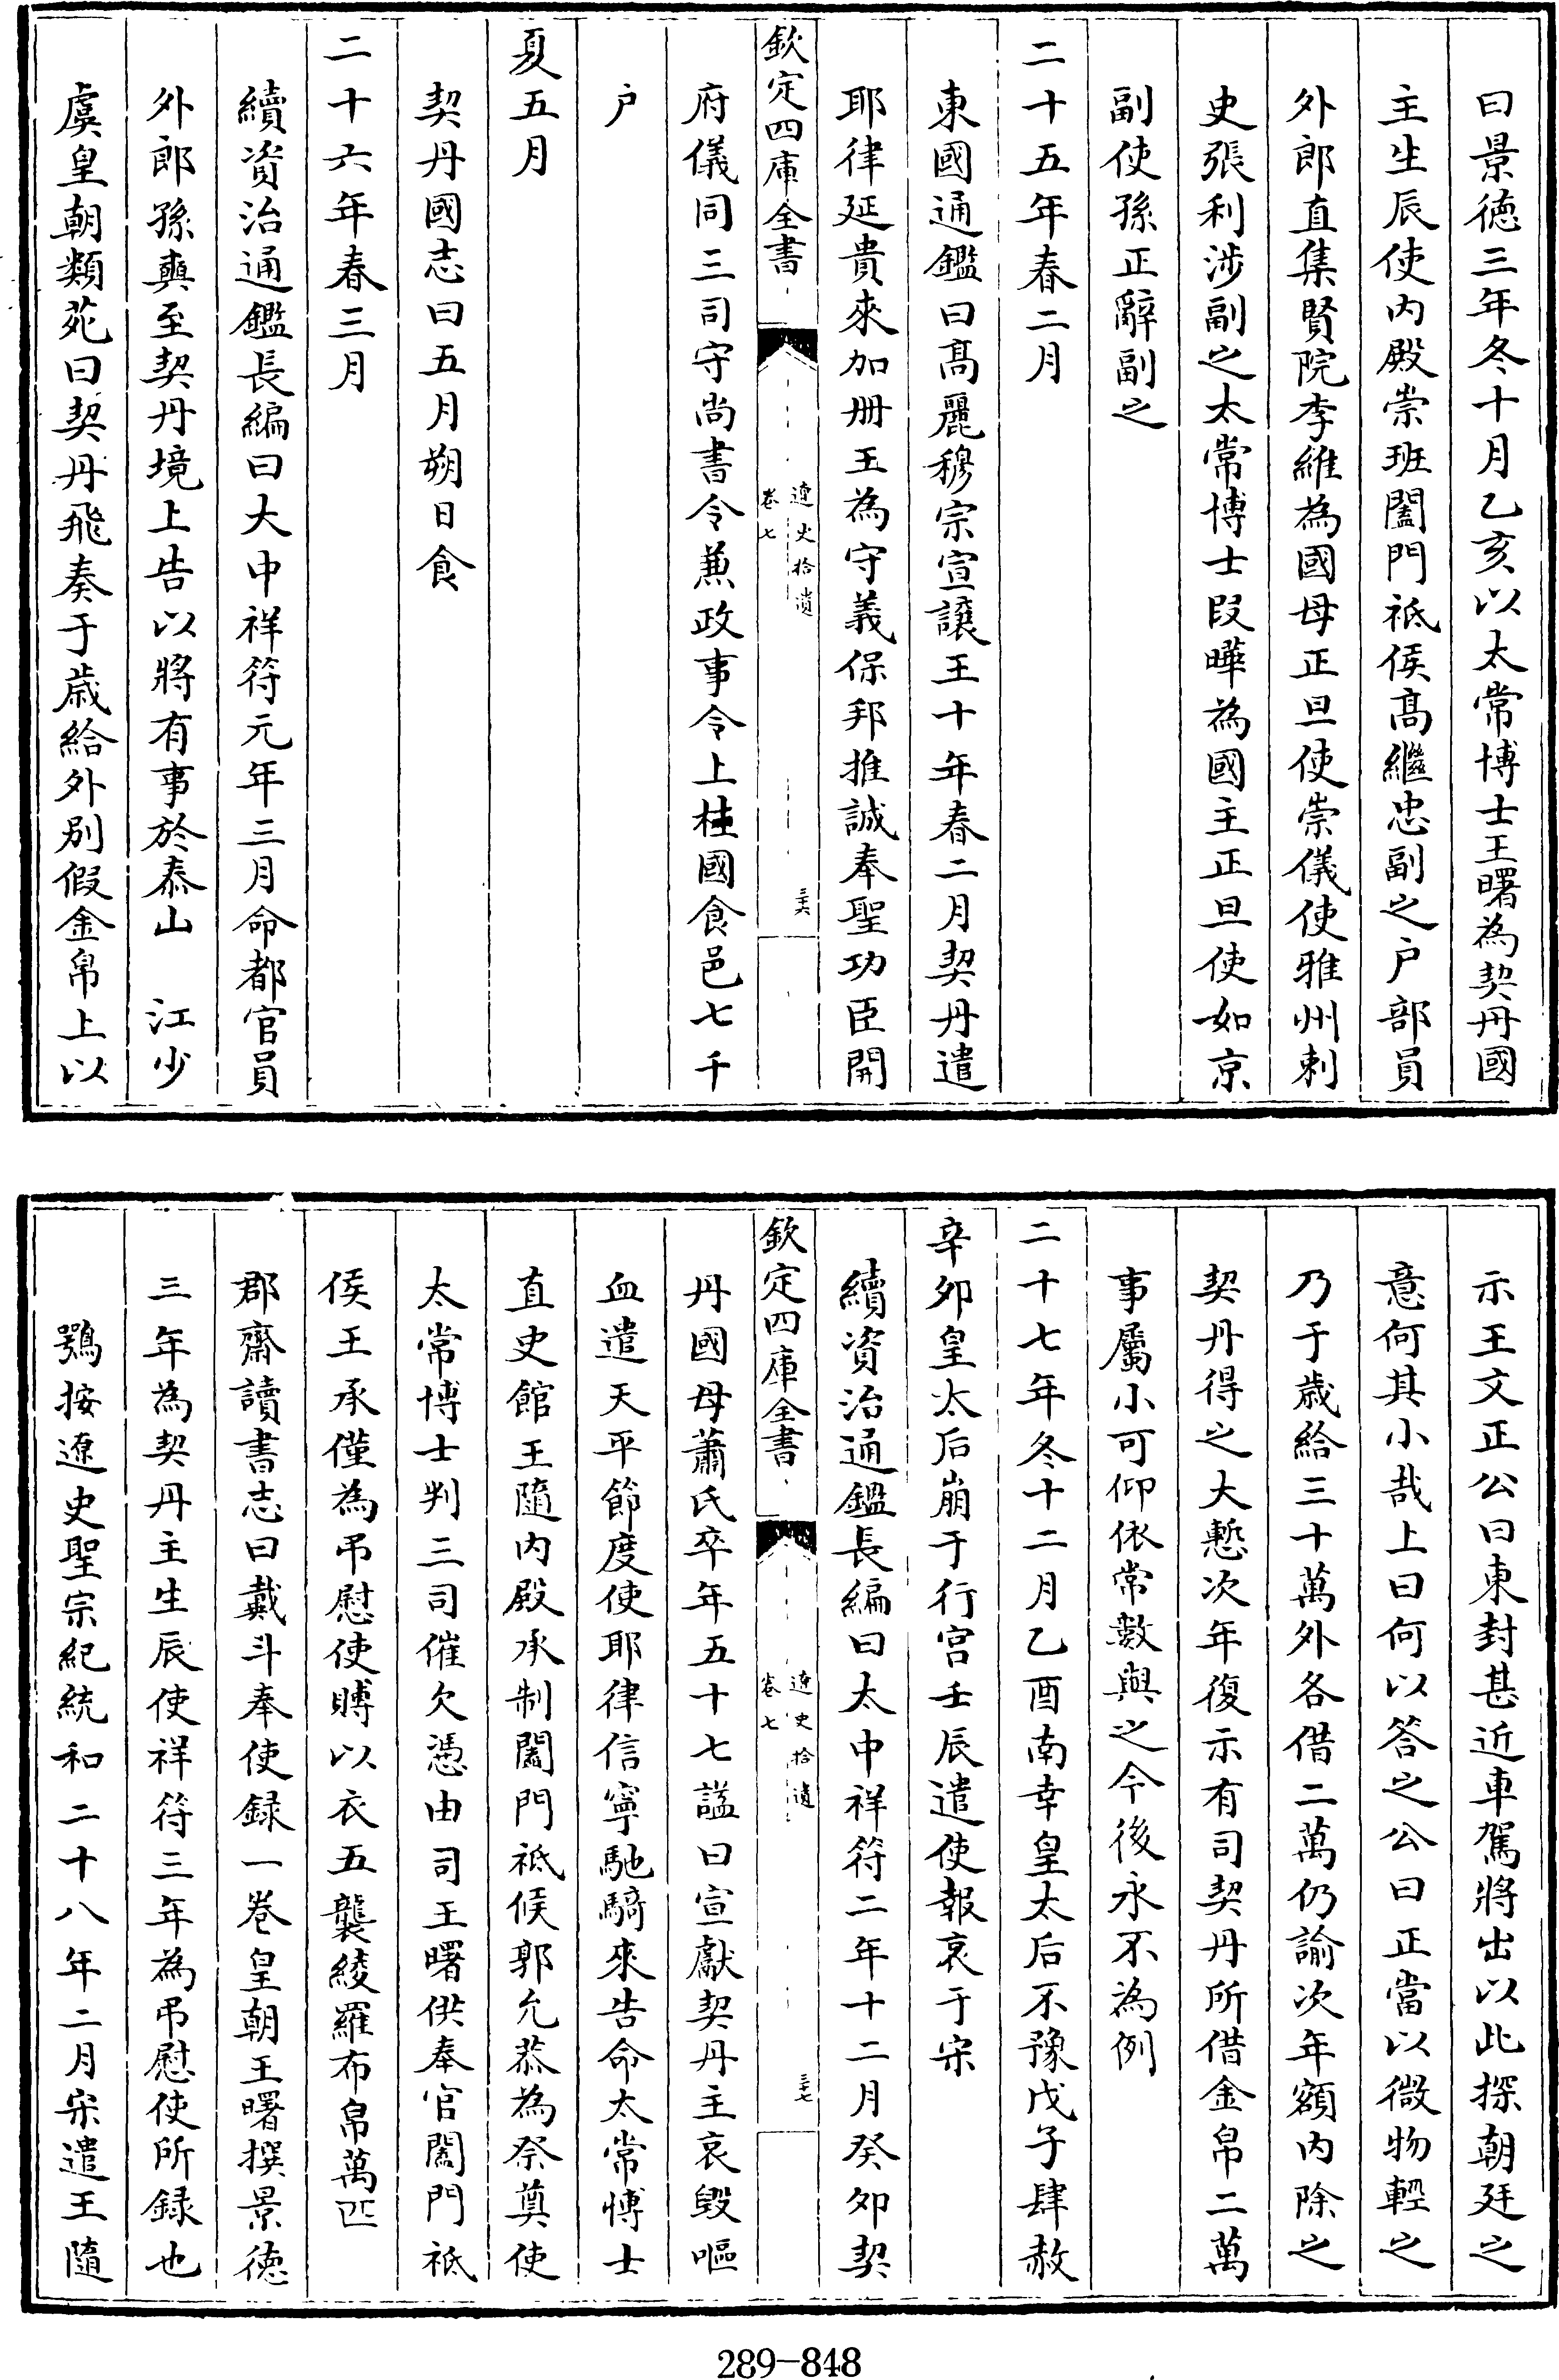 曰景徳三年冬十月乙亥以太常博士王曙為契丹國
主生辰使内殿崇班閤門祗侯髙繼忠副之户部員
外郎直集賢院李維為國母正旦使崇儀使雅州刺
史張利涉副之太常博士段曄為國主正旦使如京
副使孫正辭副之
二十五年春二月
東國通鑑曰髙麗穆宗宣讓王十年春二月契丹遣
耶律延貴來加册王為守義保邦推誠奉聖功臣開
欽定四庫全書
遼史拾遺
卷七
三六
府儀同三司守尚書令蕪政事令上柱國食邑七千
户
夏五月
契丹國志曰五月朔日食
二十六年春三月
續資治通鑑長編曰大中祥符元年三月命都官員
外郎孫奭至契丹境上告以將有事於泰山 江少
虞皇朝類苑曰契丹飛奏于歲給外别假金帛上以
示王文正公曰東封甚近車駕將出以此探朝廷之
意何其小哉上曰何以答之公曰正當以微物輕之
乃于歲給三十萬外各借二萬仍諭次年額内除之
契丹得之大慙次年復示有司契丹所借金帛二萬
事屬小可仰依常數與之今後永不為例
二十七年冬十二月乙酉南幸皇太后不豫戊子肆赦
辛夘皇太后崩于行宫壬辰遣使報哀于宋
續資治通鑑長編曰太中祥符二年十二月癸夘契
欽定四庫全書
遼史拾遺
卷七
三七
丹國母蕭氏卒年五十七諡曰宣獻契丹主哀毁嘔
血遣天平節度使耶律信寧馳騎來告命太常博士
直史館王隨内殿承制閤門祗候郭允恭為祭奠使
太常博士判三司催欠憑由司王曙供奉官閤門祗
侯王承僅為弔慰使賻以衣五襲綾羅布帛萬匹
郡齋讀書志曰戴斗奉使録一巻皇朝王曙撰景徳
三年為契丹主生辰使祥符三年為弔慰使所録也
鶚按遼史聖宗紀統和二十八年二月宋遣王隨
289-848